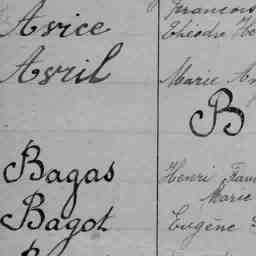 Avice
Avril
Bagas
Bagot
François
Théodre
Marie
B
Henri
Marie
Eugène